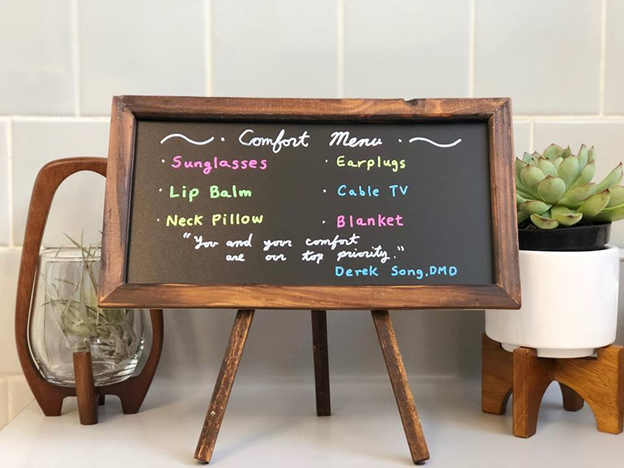 Comfort Menu
· Sunglasses · Earplugs
· Lip Balm · Cable TV
· Neck Pillow · Blanket
"You and your comfort
are our top priority."
Derek Song, DMD